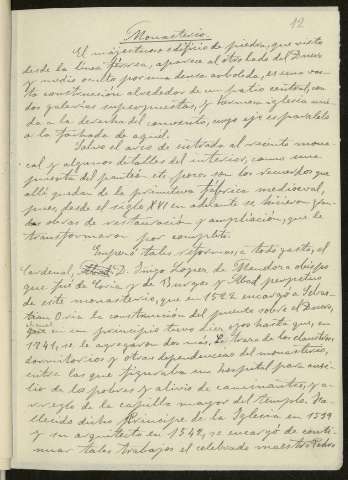 12
Monasterio.
El majestuoso edificio de piedra, que visto
desde la línea férrea, aparece al otro lado del Duero
y medio oculto por una densa arboleda, es una vas-
ta construcción alrededor de un patio central, con
dos galerías superpuestas, y hermosa iglesia uni-
da a la derecha del convento, cuyo eje es paralelo
a la fachada de aquel.
Salvo el arco de entrada al recinto mona-
cal y algunos detalles del interior, como una
puerta del panteón etc pocos son los recuerdos que
allí quedan de la primitiva fábrica medioeval,
pues, desde el siglo XVI en adelante se hicieron gran-
des obras de restauración y ampliación, que le
transformaron por completo.
Empezó tales reformas, a todo gasto, el
Cardenal, D. Iñigo López de Mendoza obispo
que fué de Coria y de Burgos y Abad perpetuo
de este monasterio, que en 1522 encargó a Sebas-
tian Oria la construcción del puente sobre el Duero,
que en un principio tuvo ojos hasta que, en
1241, se le agregaron dos más. La traza de los claustros,
dormitorios y otras dependencias del monasterio,
entre las que figuraba un hospital para auxi-
lio de los pobres y alivio de caminantes, y a-
rreglo de la capilla mayor del templo. Fa-
llecido dicho Príncipe de la Iglesia en 1539
y su arquitecto en 1542, se encargó de conti-
nuar tales trabajos el celebrado maestro Pedro